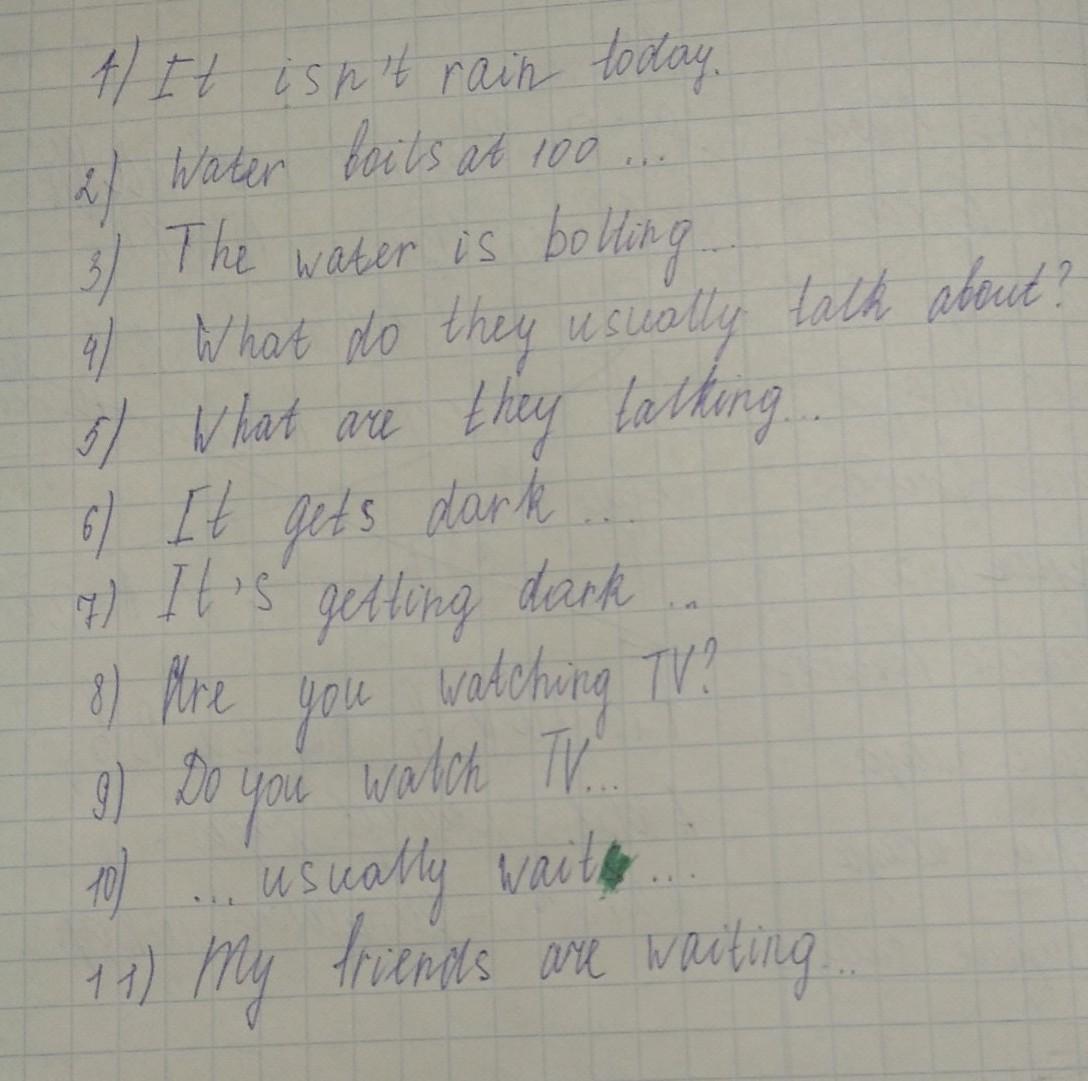 1) It isn't rain today.
2) Water boils at 100 ...
3) The water is boiling...
4) What do they usually talk about?
5) What are they talking...
6) It gets dark ...
7) It's getting dark ...
8) Are you watching TV?
9) Do you watch TV...
10) ... usually wait ...
11) My friends are waiting...